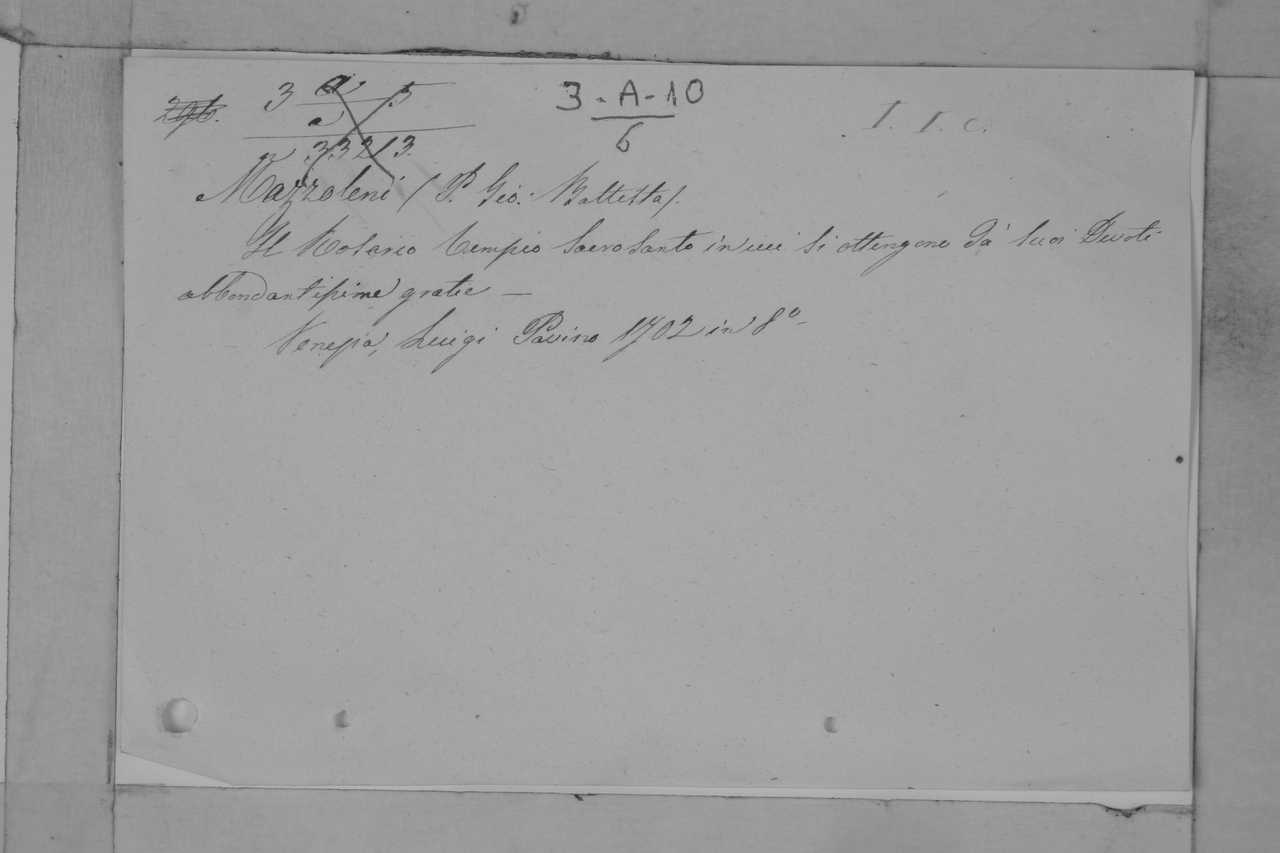 3 a 5
3-A-10
6
I. I. C.
3 3 2 1 3.
Mazzoleni (P. Gio: Battista).
Il Rosario tempio Sacrosanto in cui si ottengono da' suoi Devoti
abbondantissime grazie —
Venezia, Luigi Pavino 1702 in 8º